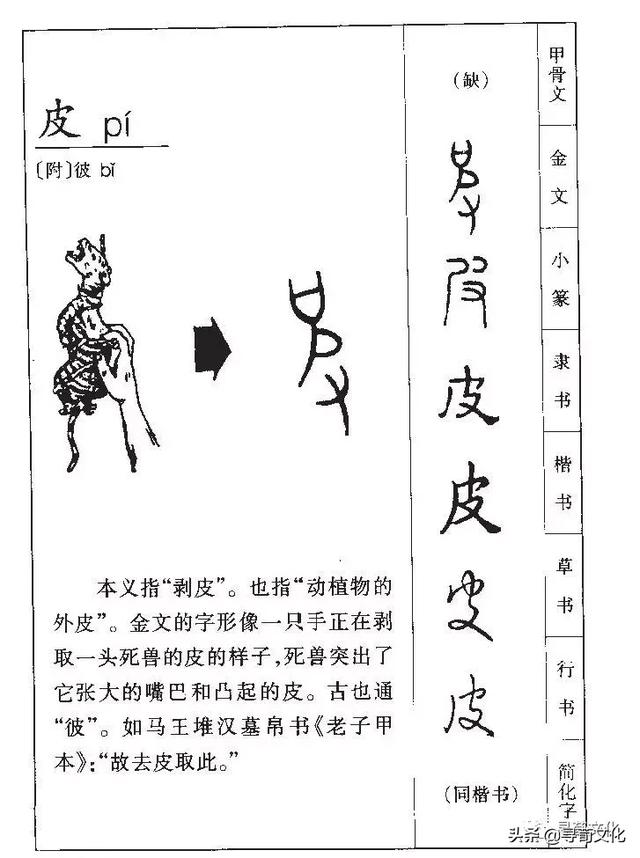 皮 pí
〔附〕彼 bǐ
本义指“剥皮”。也指“动植物的
外皮”。金文的字形像一只手正在剥
取一头死兽的皮的样子,死兽突出了
它张大的嘴巴和凸起的皮。古也通
“彼”。如马王堆汉墓帛书《老子甲
本》:“故去皮取此。”
(缺)
皮
皮
皮
皮
皮
皮
(同楷书)
甲骨文
金文
小篆
隶书
楷书
草书
行书
简化字
寻荀文化
头条@寻荀文化